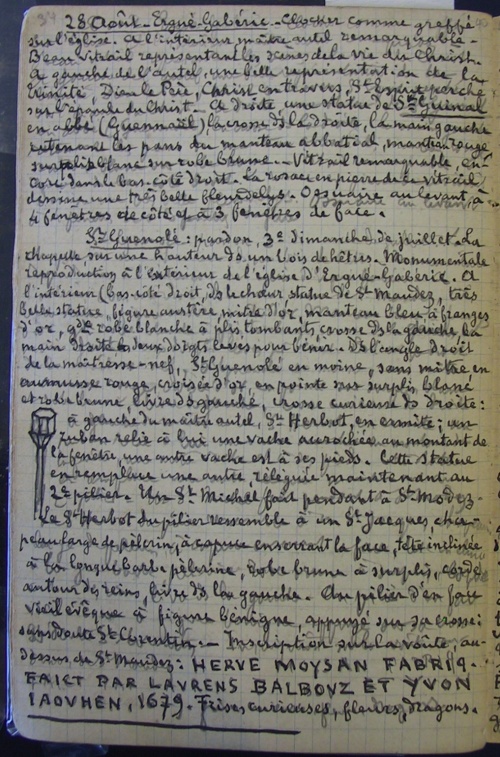 28 Août - Ergué-Gabéric - Clocher comme greffé
sur l'église. A l'intérieur maître autel remarquable -
Beau vitrail représentant les scènes de la vie du Christ.
A gauche de l'autel, une belle représentation de la
Trinité, Dieu le Père, Christ en travers, St Esprit perché
sur l'épaule du Christ. A droite une statue de St Guénal
en abbé (Guennaël), la crosse ds la droite, la main gauche
retenant les pans du manteau abbatial, manteau rouge
surplis blanc sur robe brune. - Vitrail remarquable, en-
core dans le bas-côté droit. La rosace en pierre de ce vitrail
dessine une très belle fleur de lys. Ossuaire au levant, à
4 fenêtres de côté et à 3 fenêtres de face.
St Guénolé : pardon, 3e dimanche de juillet. La
chapelle sur une hauteur ds un bois de hêtres. Monumentale
reproduction à l'extérieur de l'église d'Ergué-Gabéric. A
l'intérieur (bas-côté droit, ds le chœur statue de St Maudez, très
belle statue, figure austère mitre d'or, manteau bleu à franges
d'or, gde robe blanche à plis tombants, crosse ds la gauche la
main droite les deux doigts levés pour bénir. Ds l'angle droit
de la maîtresse-nef, St Guénolé en moine, sans mitre en
aumusse rouge, croisée d'or, en pointe sur surplis blanc
et robe brune, livre ds gauche, crosse curieuse ds droite :
à gauche du maître autel, St Herbot, en ermite ; un
ruban relie à lui une vache accrochée au montant de
la fenêtre, une autre vache est à ses pieds. Cette statue
en remplace une autre, reléguée maintenant au
2e pilier. Un St Michel fait pendant à St Modez -
Le St Herbot du pilier ressemble à un St Jacques, cha-
peau large de pèlerin, à capuce enserrant la face, tête inclinée
à la longue barbe pèlerine, robe brune à surplis, corde
autour des reins, livre ds la gauche. Au pilier d'en face
vieil évêque à figure bénigne, appuyé sur sa crosse :
sans doute St Corentin : - Inscription sur la voûte au-
dessus de St Maudez : HERVE MOYSAN FABRIQ.
FAICT PAR LAVRENS BALBOVZ ET YVON
IAOVHEN, 1679. Frises curieuses, fleurs, dragons.